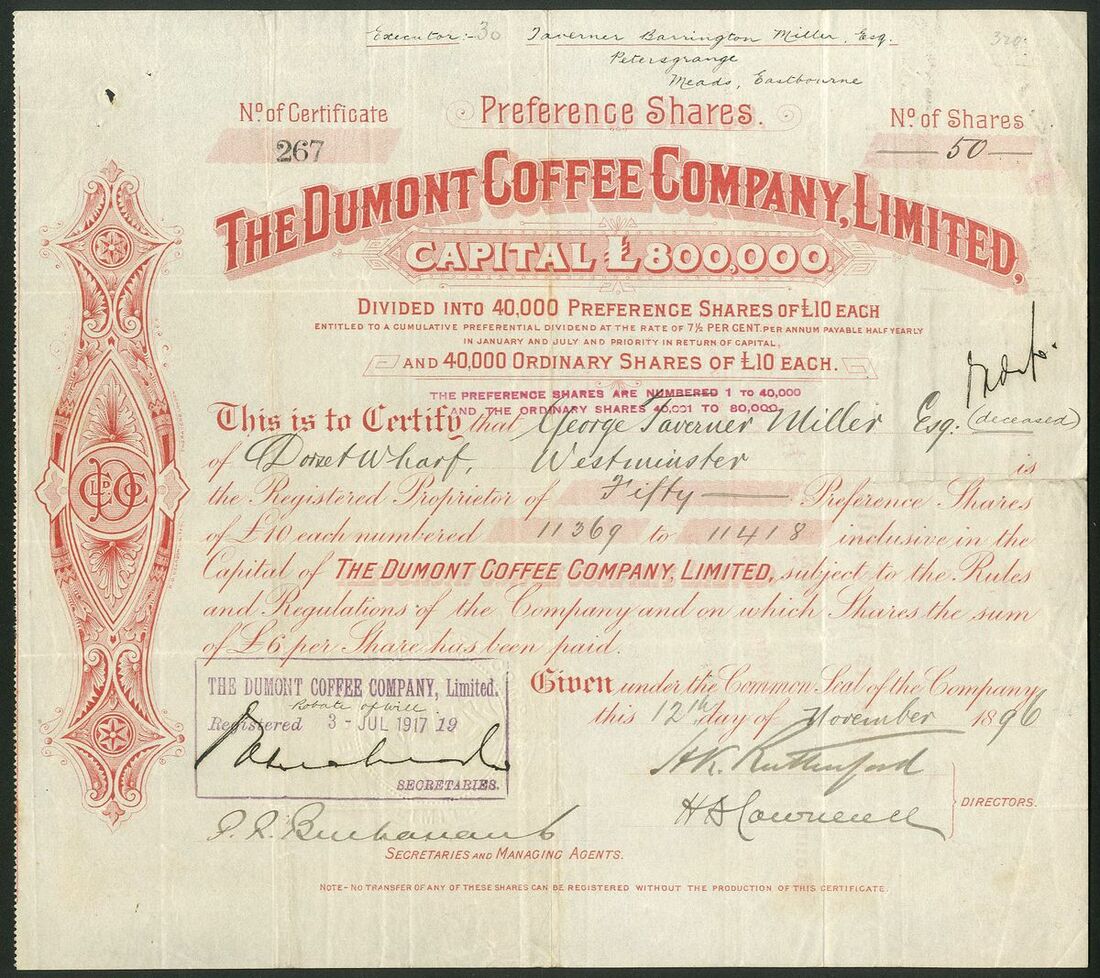 Executor:- 30 Taverner Barrington Miller, Esq. 320
Petersgrange
Meads, Eastbourne
No. of Certificate
Preference Shares.
No. of Shares
267
50
THE DUMONT COFFEE COMPANY, LIMITED,
CAPITAL £800,000.
DIVIDED INTO 40,000 PREFERENCE SHARES OF £10 EACH
ENTITLED TO A CUMULATIVE PREFERENTIAL DIVIDEND AT THE RATE OF 7½ PER CENT. PER ANNUM PAYABLE HALF YEARLY
IN JANUARY AND JULY AND PRIORITY IN RETURN OF CAPITAL,
AND 40,000 ORDINARY SHARES OF £10 EACH.
THE PREFERENCE SHARES ARE NUMBERED 1 TO 40,000
AND THE ORDINARY SHARES 40,001 TO 80,000.
This is to Certify that George Taverner Miller Esq. (deceased)
of Dorset Wharf, Westminster is
the Registered Proprietor of Fifty Preference Shares
of £10 each numbered 11369 to 11418 inclusive in the
Capital of THE DUMONT COFFEE COMPANY, LIMITED, subject to the Rules
and Regulations of the Company and on which Shares the sum
of £6 per Share has been paid.
THE DUMONT COFFEE COMPANY, Limited.
Probate of Will
Registered 3 - JUL 1917 19
SECRETARIES.
Given under the Common Seal of the Company
this 12th day of November 1896
H.K. Rutherford
DIRECTORS.
SECRETARIES AND MANAGING AGENTS.
NOTE - NO TRANSFER OF ANY OF THESE SHARES CAN BE REGISTERED WITHOUT THE PRODUCTION OF THIS CERTIFICATE.